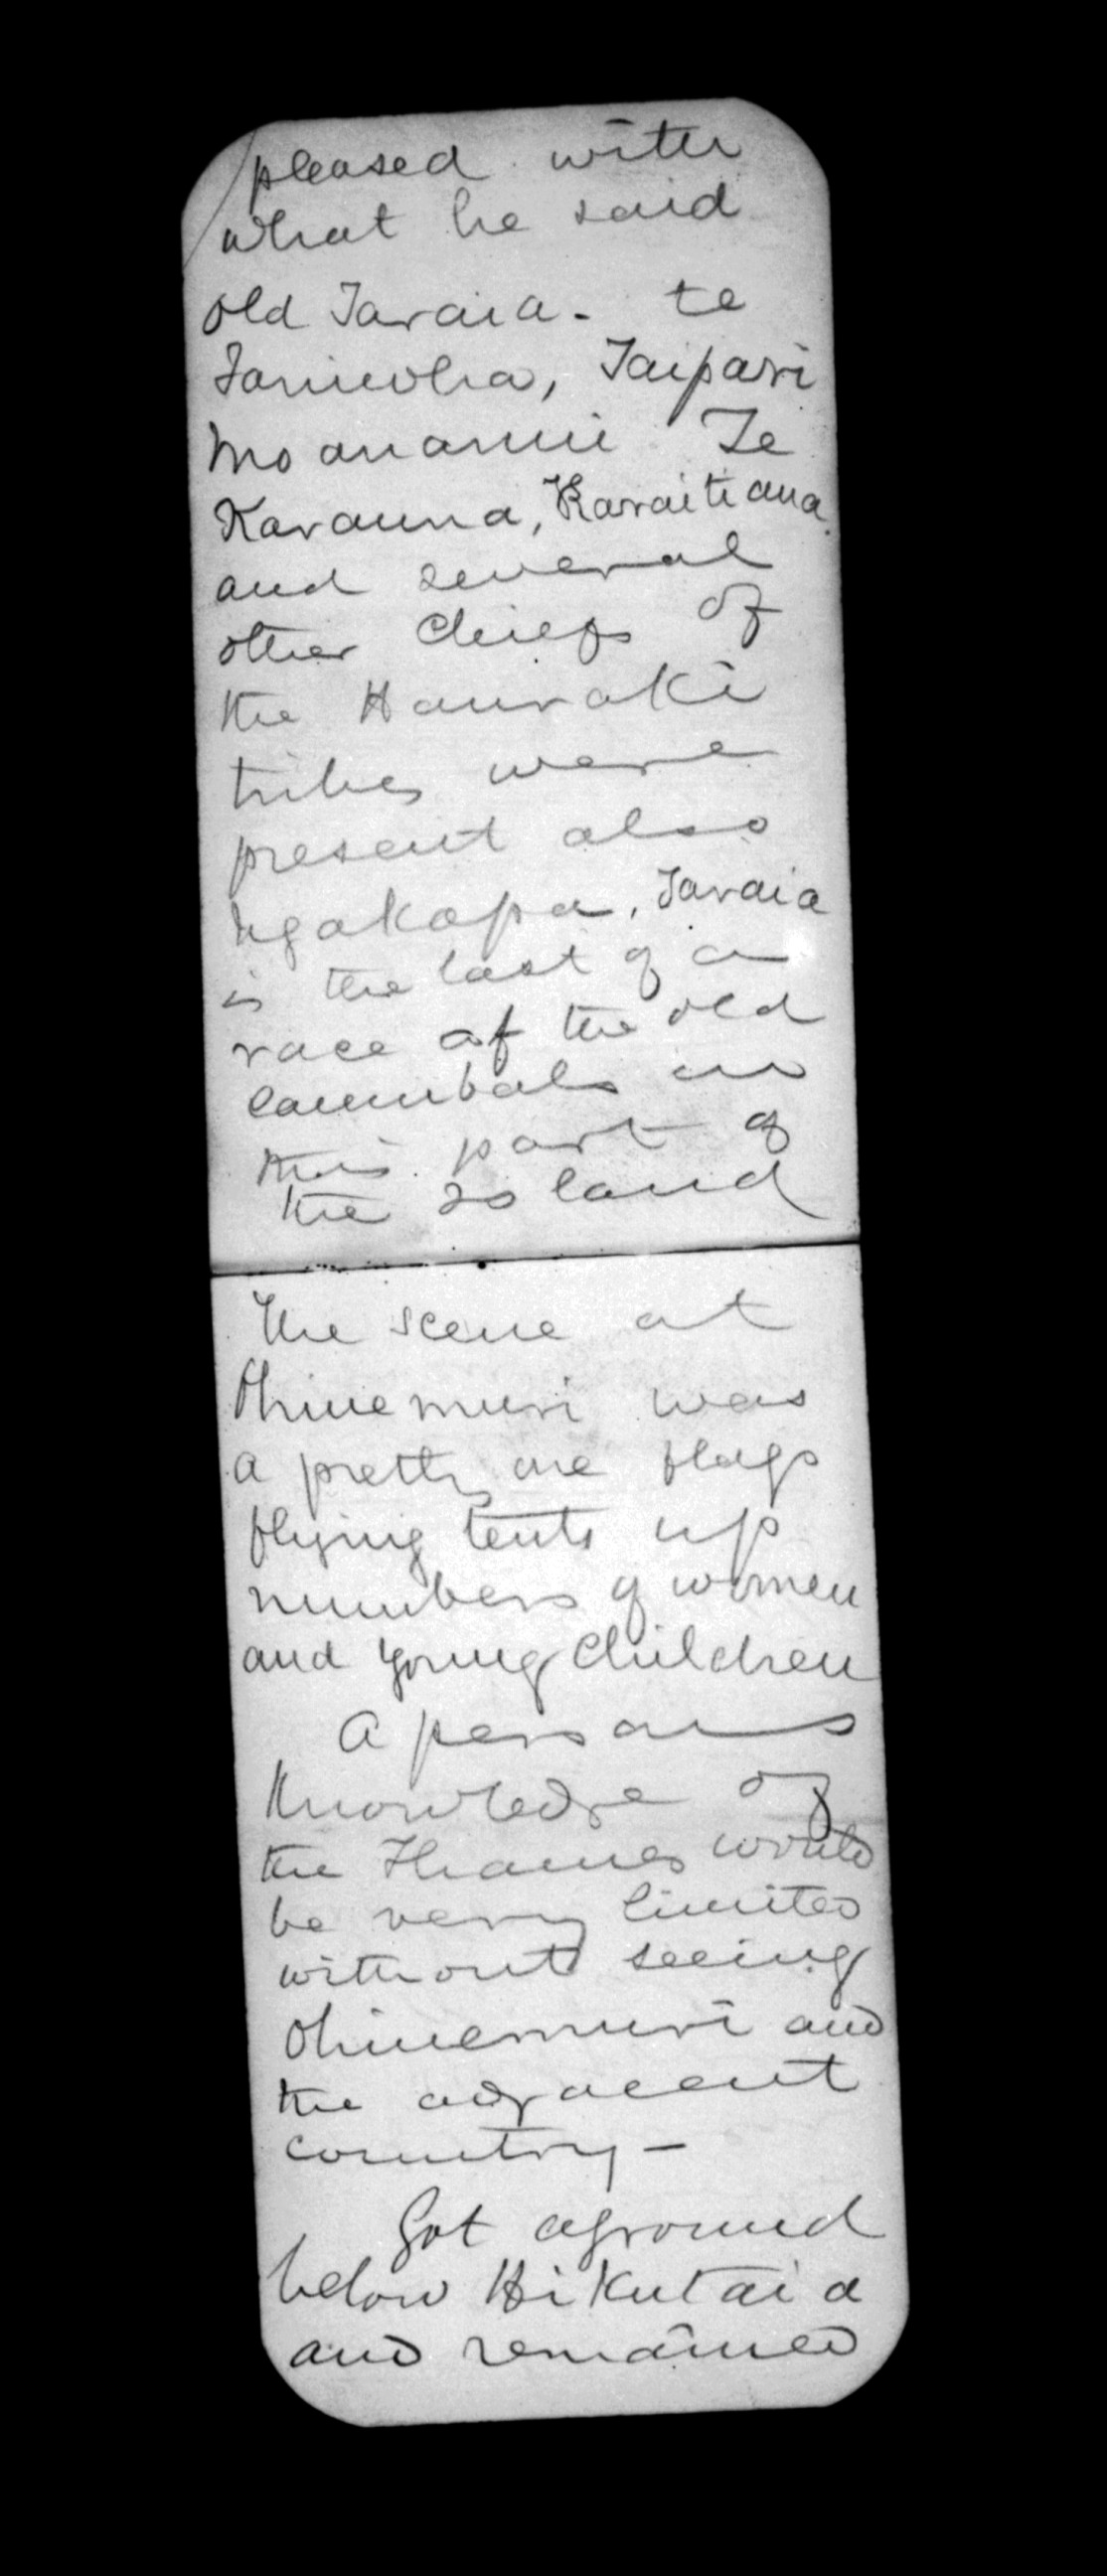 pleased with
what he said
old Taraia - te
Taniwha, Taipari
Moananui Te
Karauna, Karaitiana
and several
other Chiefs of
the Hauraki
tribes were
present also
Ngakapa, Taraia
is the last of a
race of the old
cannibals in
this part of
the Island
The scene at
Ohinemuri was
a pretty one flags
flying tents up
numbers of women
and young Children
A persons
knowledge of
the Thames would
be very limited
without seeing
Ohinemuri and
the adjacent
country -
Got aground
below Hikutaia
and remained